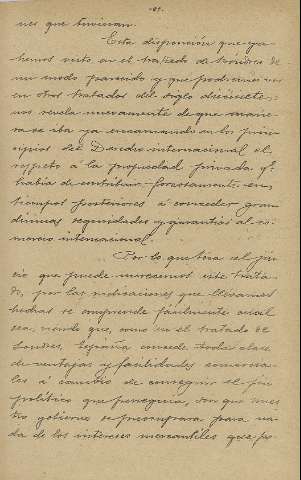 nes que tuviesen.
Esta disposición que ya
hemos visto en el tratado de Londres de
un modo parecido y que podríamos ver
en otros tratados del siglo diecisiete,
nos revela nuevamente de que mane-
ra se iba ya encarnando en los prin-
cipios del Derecho internacional el
respeto á la propiedad privada que
había de contribuir, forzosamente, en
tiempos posteriores á conceder gran-
dísimas seguridades y garantías al co-
mercio internacional.
Por lo que toca al jui-
cio que puede merecernos este trata-
do, por las indicaciones que llevamos
hechas se comprende facilmente cual
sea, viendo que, como en el tratado de
Londres, España concede toda clase
de ventajas y facilidades comercia-
les á cambio de conseguir el fin
político que perseguía, sin que nues-
tro gobierno se preocupara para na-
da de los intereses mercantiles que